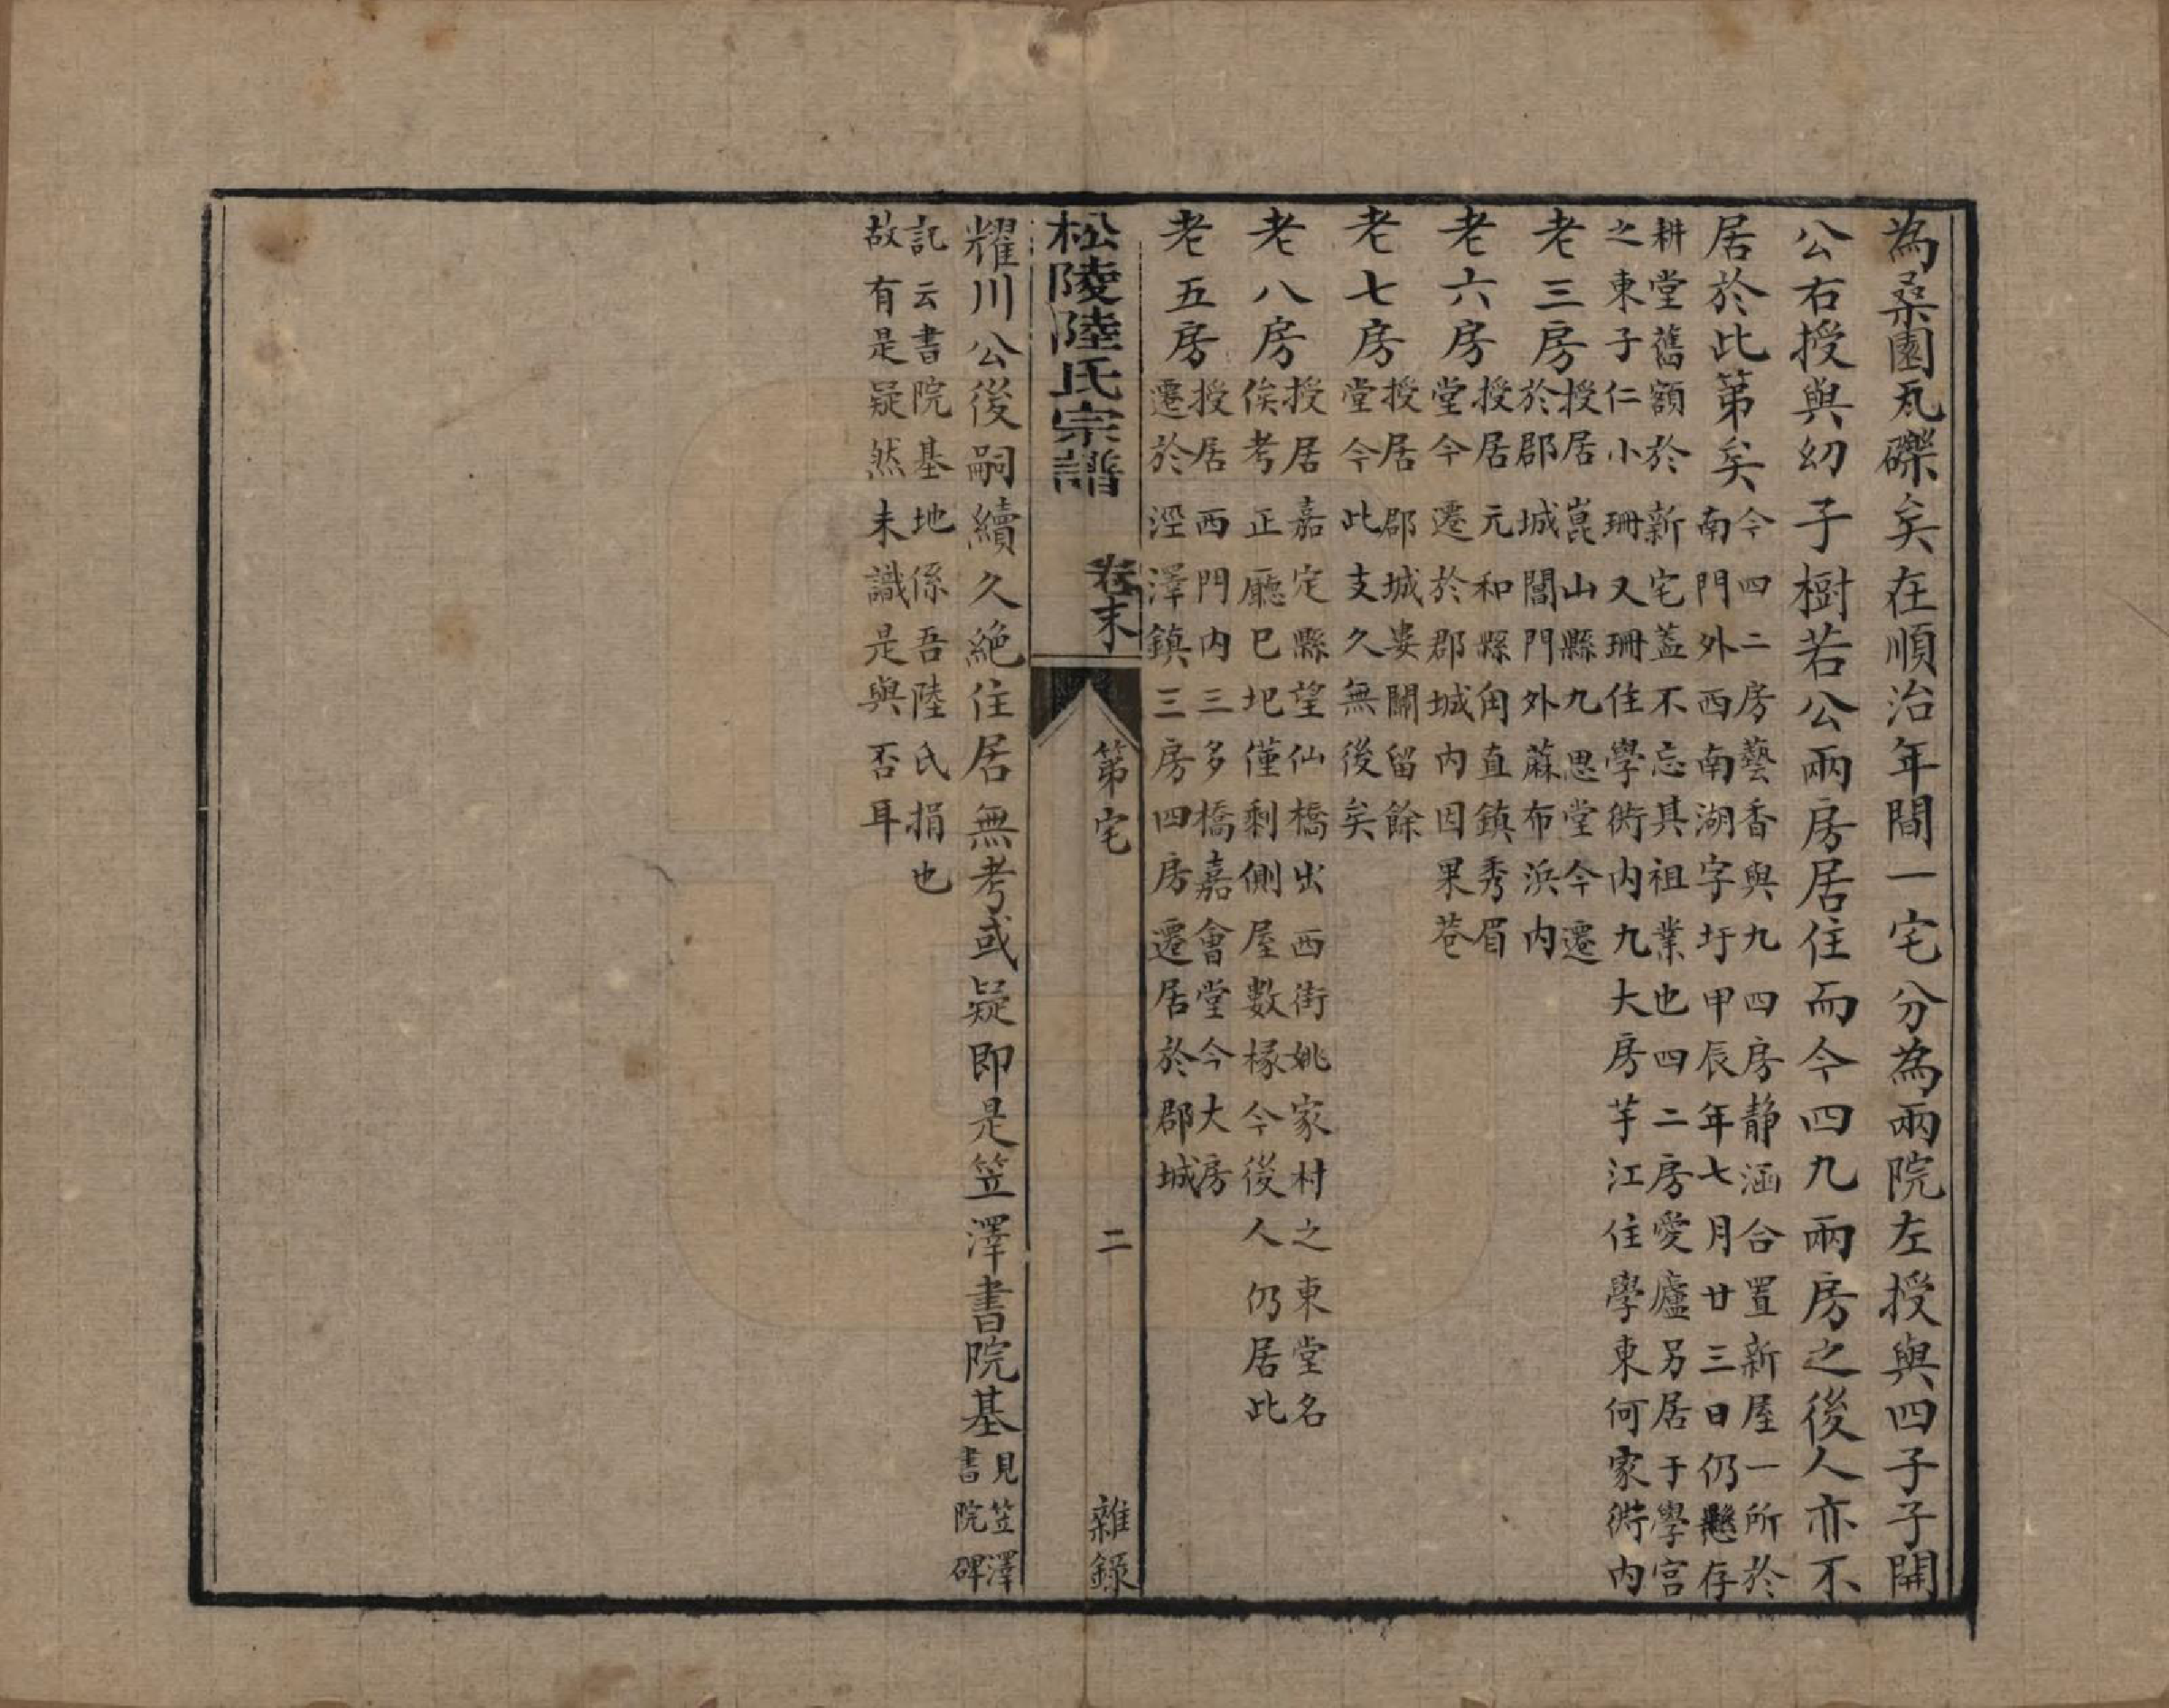 為桑園瓦礫矣在順治年間一宅分為兩院左授與四子子開
公右授與幼子樹若公兩房居住而今四九兩房之後人亦不
居於此第矣
今四二房藝香與九四房静涵合置新屋一所於
南門外西南湖字圩甲辰年七月廿三日仍懸存
耕堂舊額於新宅蓋不忘其祖業也四二房愛廬另居于學宮
之東子仁小珊又珊住學衖内九大房芋江住學東何家衖内
老三房
授居崑山縣九思堂今遷
於郡城閶門外蔴布浜内
老六房
授居元和縣甪直鎮秀眉
堂今遷於郡城内因果巷
老七房
授居郡城婁關留餘
堂今此支久無後矣
老八房
授居嘉定縣望仙橋出西街姚家村之東堂名
俟考正廳已圯僅剩側屋數椽今後人仍居此
老五房
授居西門内三多橋嘉會堂今大房
遷於澄澤鎮三房四房遷居於郡城
松陵陸氏宗譜
卷末
第宅
二
雜錄
耀川公後嗣續久絶住居無考或疑即是笠澤書院基
見笠澤
書院碑
記云書院基地係吾陸氏捐也
故有是疑然未識是與否耳